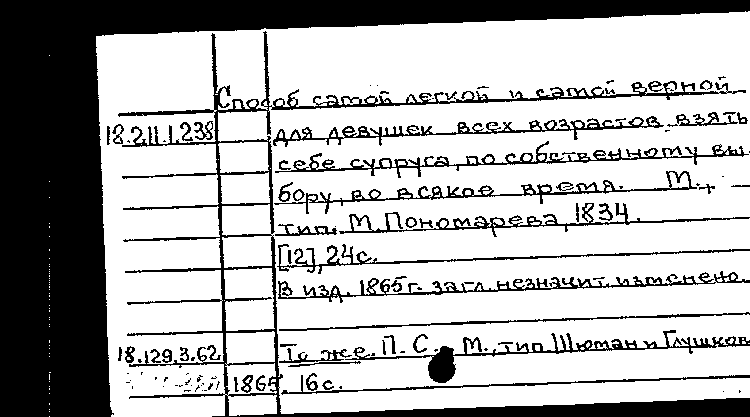 Способ самой легкой и самой верной
18.211.1.238 для девушек всех возрастов взять
себе супруга, по собственному вы-
бору, во всякое время. М.,
тип. М. Пономарева, 1834.
[12], 24с.
В изд. 1865г. загл. незначит. изменено.
18.129.3.62. То же. П. С. М., тип Шюман и Глушков
1865. 16с.